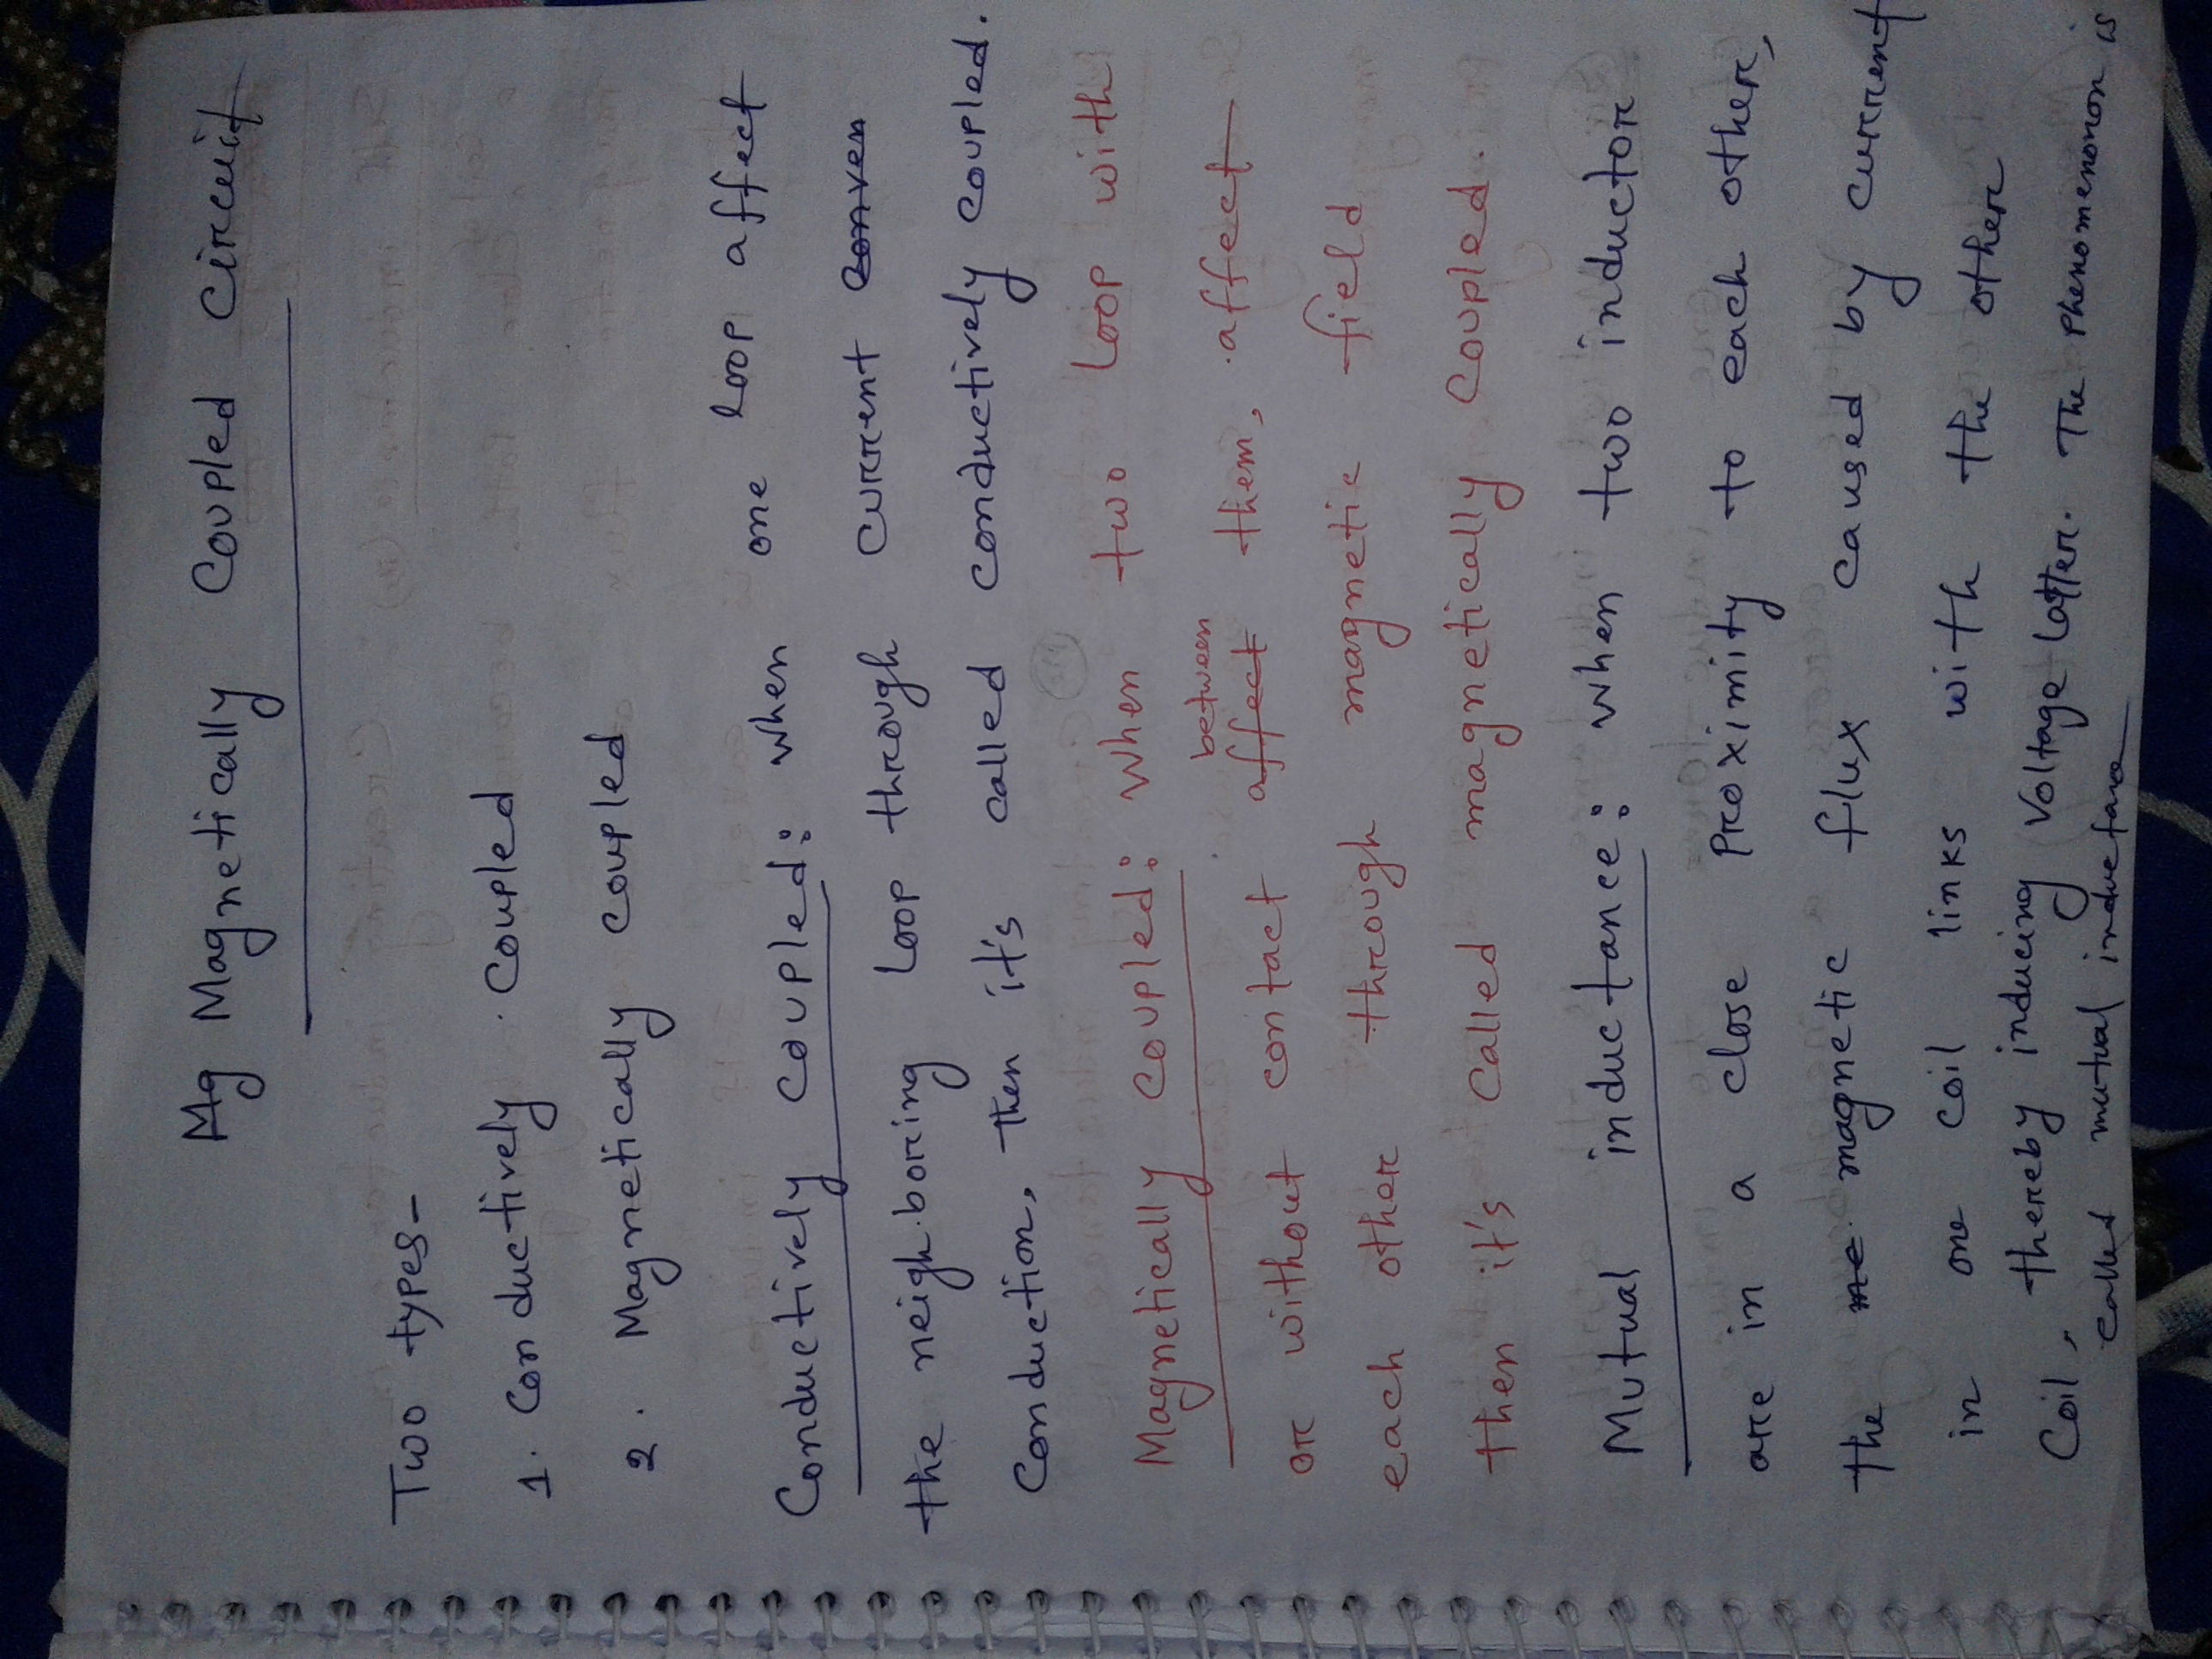 Mg Magnetically Coupled Circuit
Two types-
1. Conductively Coupled
2. Magnetically coupled
Conductively coupled: when one loop affect
the neighboring loop through current conven
conduction, then it's called conductively coupled.
Magnetically coupled: when two loop with
between
or without contact affect them, affect
each other through magnetic field
then it's called magnetically coupled.
Mutual inductance: when two inductor
are in a close proximity to each other,
the me magnetic flux caused by current
in one coil links with the other
Coil, thereby inducing voltage latter. The phenomenonon is
called mutual inductance